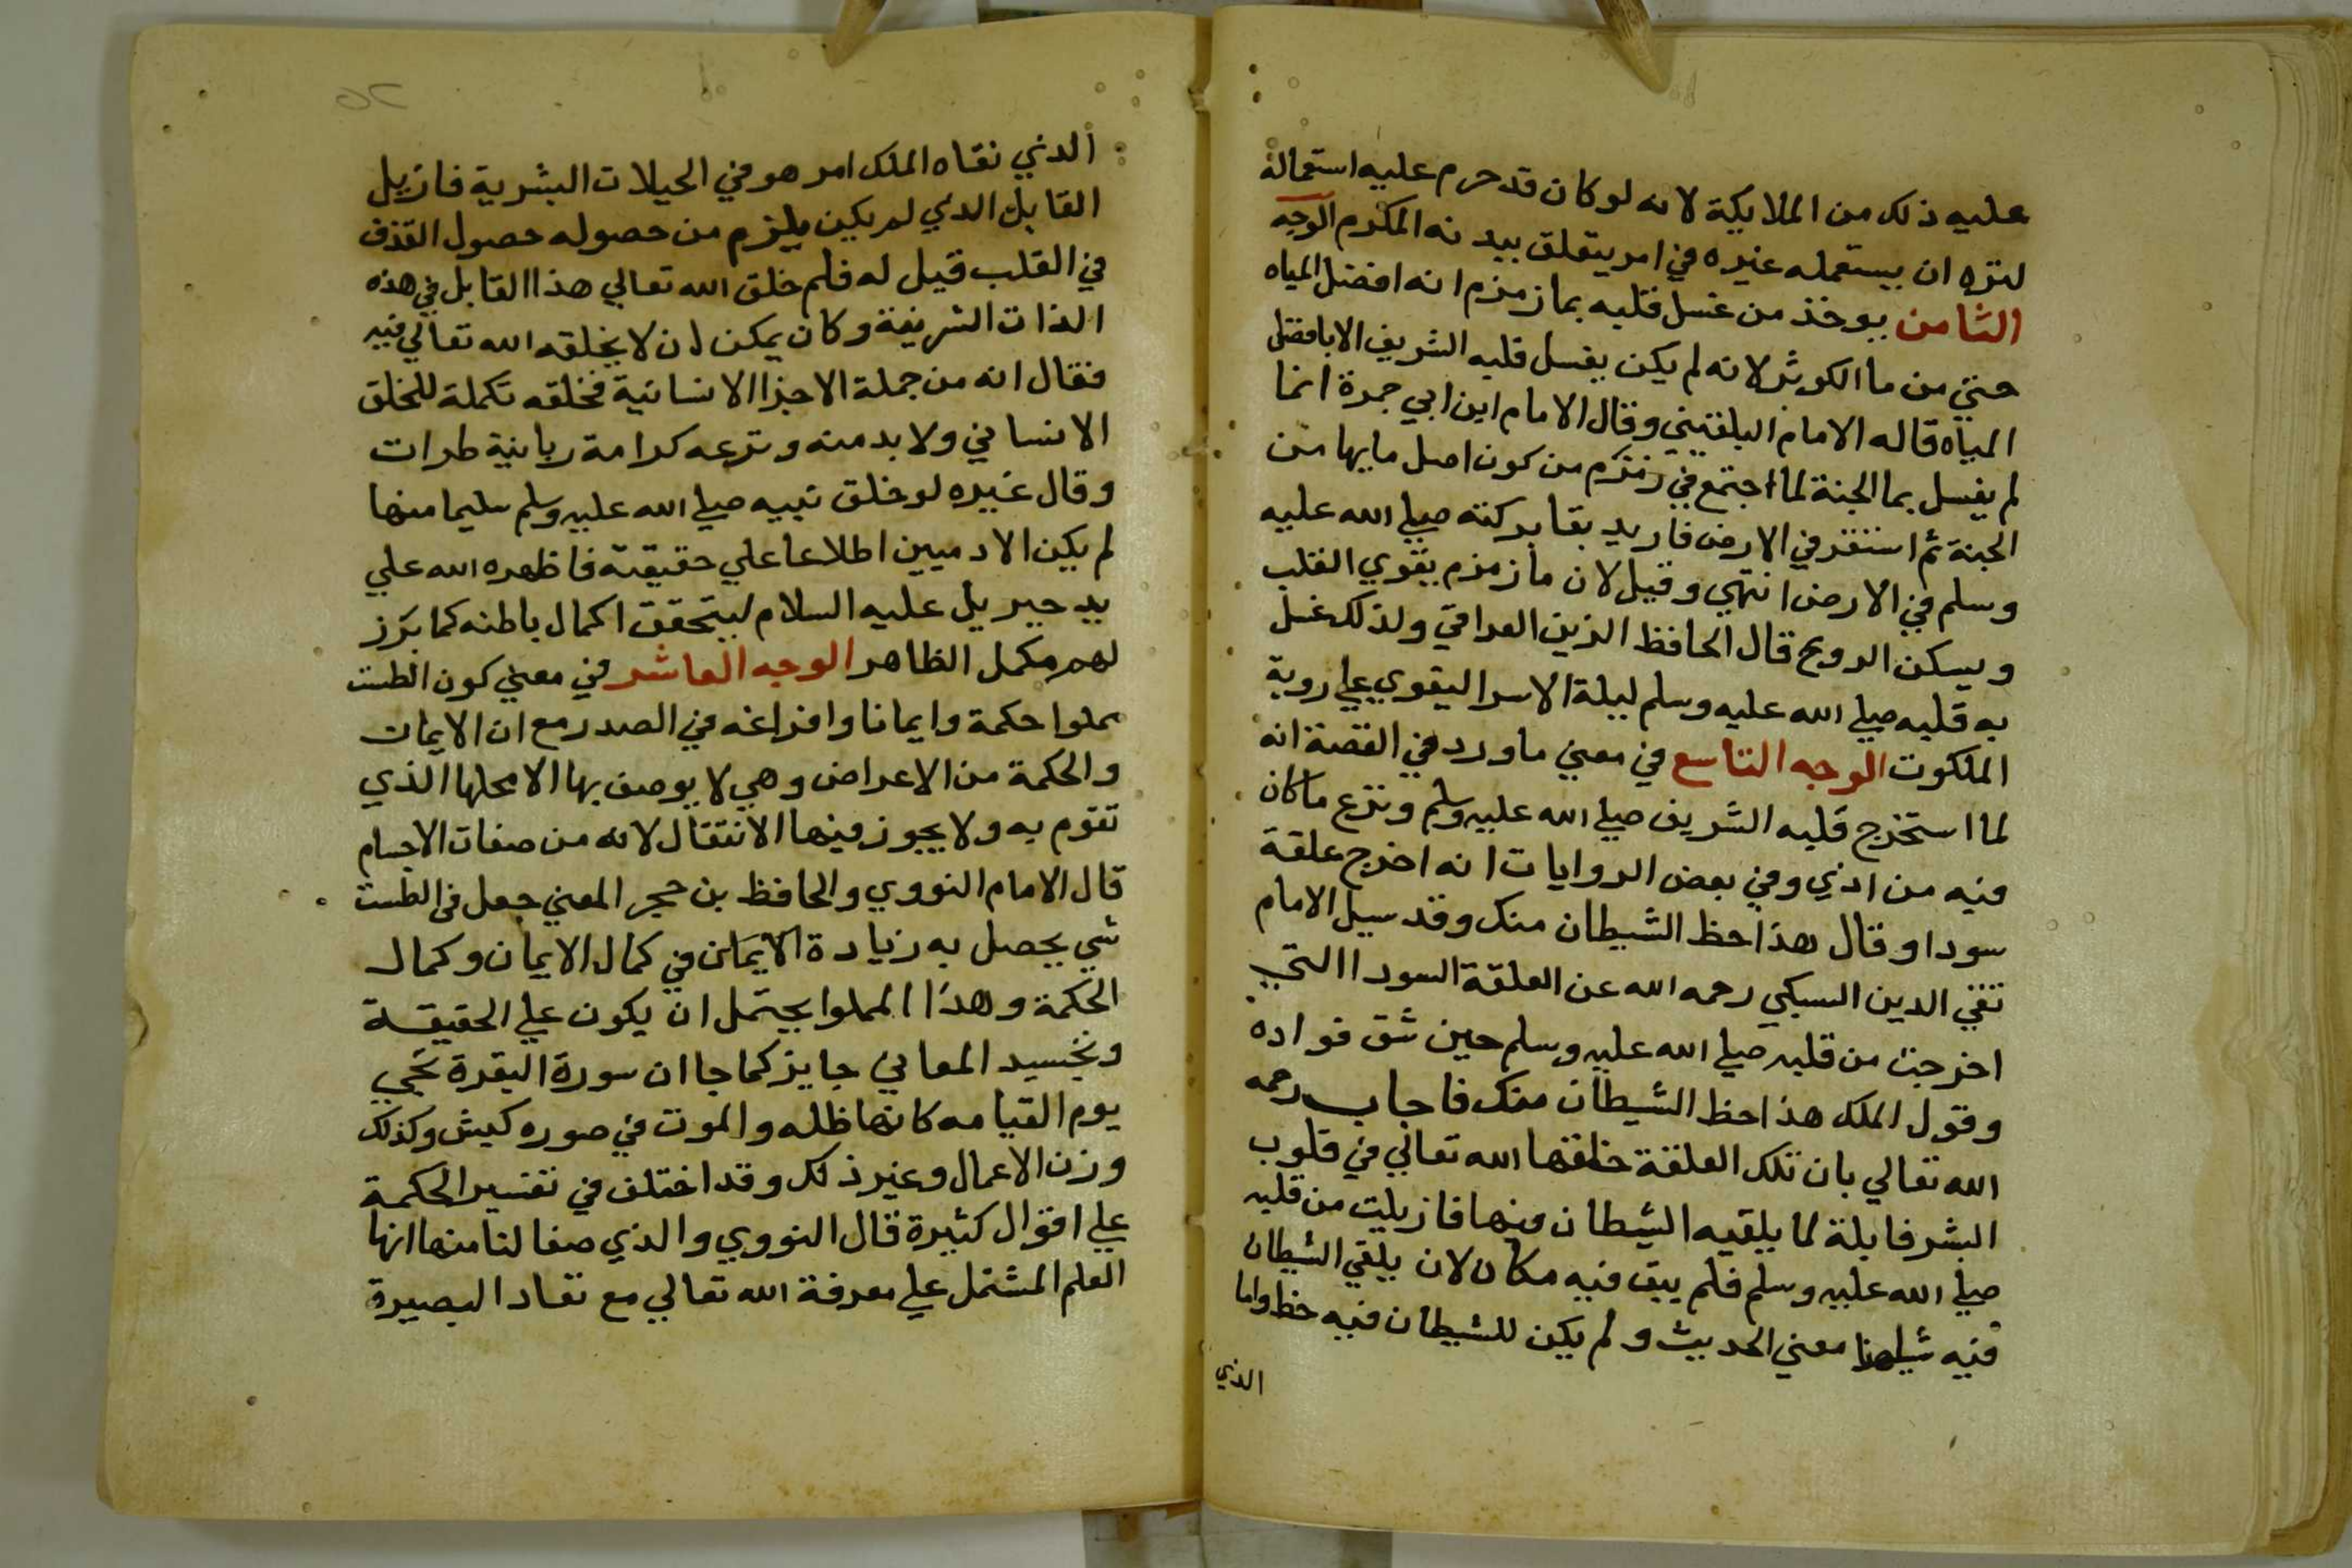 عليه ذلك من الملايكة لانه لو كان قد حرم عليه استعماله
لنزه ان يستعمله غيره في امر يتعلق ببدنه المكرم الوجه
الثامن يوخذ من غسل قلبه بما زمزم انه افضل المياه
حتي من ما الكوثر لانه لم يكن يغسل قلبه الشريف الا بافضل
المياه قاله الامام البلقيني وقال الامام ابن ابي جمرة انما
لم يغسل بما الجنة لما اجتمع في زمزم من كون اصل مايها من
الجنة ثم استقر في الارض فاريد بقا بركته صلي الله عليه
وسلم في الارض انتهي وقيل لان ما زمزم يقوي القلب
ويسكن الروع قال الحافظ الزين العراقي ولذلك غسل
به قلبه صلي الله عليه وسلم ليلة الاسرا ليقوي علي روية
الملكوت الوجه التاسع في معني ما ورد في القصة انه
لما استخرج قلبه الشريف صلي الله عليه وسلم ونزع ما كان
فيه من اذي وفي بعض الروايات انه اخرج علقة
سودا وقال هذا حظ الشيطان منك وقد سيل الامام
تقي الدين السبكي رحمه الله عن العلقة السودا التي
اخرجت من قلبه صلي الله عليه وسلم حين شق فواده
وقول الملك هذا حظ الشيطان منك فاجاب رحمه
الله تعالي بان تلك العلقة خلقها الله تعالي في قلوب
البشر قابلة لما يلقيه الشيطان منها فازيلت من قلبه
صلي الله عليه وسلم فلم يبق فيه مكان لان يلقي الشيطان
فيه شيا هذا معني الحديث ولم يكن للشيطان فيه حظ واما
الذي
الذي نقاه الملك امر هو في الجبلات البشرية فازيل
القابل الذي لم يكن يلزم من حصوله حصول القذف
في القلب قيل له فلم خلق الله تعالي هذا القابل في هذه
الذات الشريفة وكان يمكن ان لا يخلقه الله تعالي فيه
فقال انه من جملة الاجزا الانسانية فخلقه تكملة للخلق
الانساني ولا بد منه ونزعه كرامة ربانية طرات
وقال غيره لو خلق نبيه صلي الله عليه وسلم سليما منها
لم يكن الادميين اطلاعا علي حقيقته فاظهره الله علي
يد جبريل عليه السلام ليتحقق اكمال باطنه كما برز
لهم مكمل الظاهر الوجه العاشر في معني كون الطست
مملوا حكمة وايمانا وافراغه في الصدر مع ان الايمان
والحكمة من الاعراض وهي لا يوصف بها الا محلها الذي
تقوم به ولا يجوز فيها الانتقال لانه من صفات الاجسام
قال الامام النووي والحافظ بن حجر المعني جعل في الطست
شي يحصل به زيادة الايمان في كمال الايمان وكمال
الحكمة وهذا المملوا يحتمل ان يكون علي الحقيقة
وتجسيد المعاني جايز كما جا ان سورة البقرة تجي
يوم القيامه كانها ظله والموت في صوره كبش وكذلك
وزن الاعمال وغير ذلك وقد اختلف في تفسير الحكمة
علي اقوال كثيرة قال النووي والذي صفا لنا منها انها
العلم المشتمل علي معرفة الله تعالي مع نفاد البصيرة